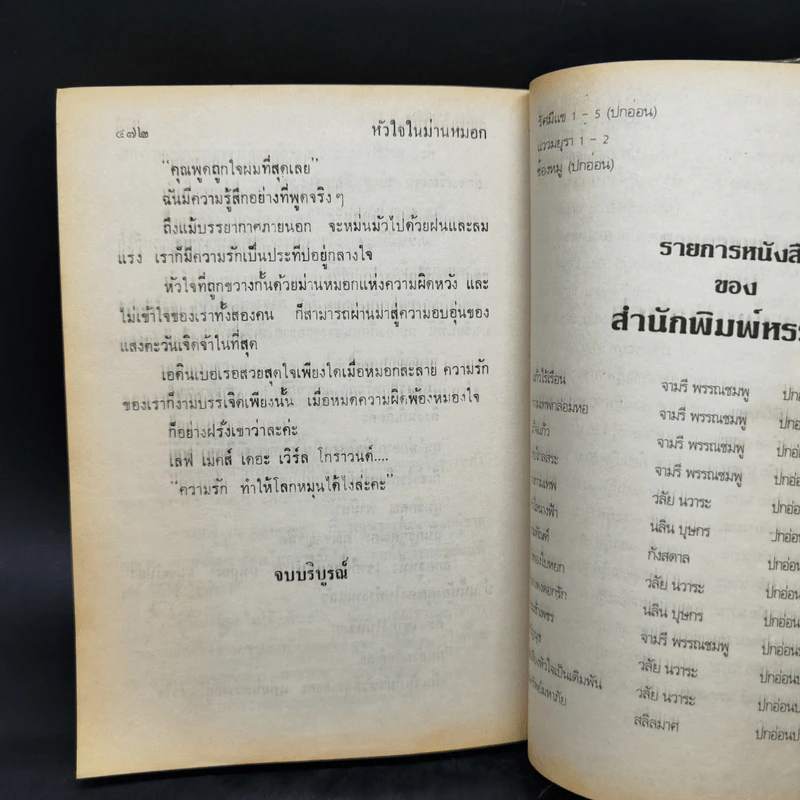 ๔๗๒ หัวใจในม่านหมอก
"คุณพูดถูกใจผมที่สุดเลย"
ฉันมีความรู้สึกอย่างที่พูดจริงๆ
ถึงแม้บรรยากาศภายนอก จะหม่นมัวไปด้วยฝนและลม
แรง เราก็มีความรักเป็นประทีปอยู่กลางใจ
หัวใจที่ถูกขวางกั้นด้วยม่านหมอกแห่งความผิดหวัง และ
ไม่เข้าใจของเราทั้งสองคน ก็สามารถผ่านมาสู่ความอบอุ่นของ
แสงตะวันเจิดจ้าในที่สุด
เอดินเบอเรอสวยสุดใจเพียงใดเมื่อหมอกละลาย ความรัก
ของเราก็งามบรรเจิดเพียงนั้น เมื่อหมดความผิดพ้องหมองใจ
ก็อย่างฝรั่งเขาว่าละค่ะ
เลฟ เมคส์ เดอะ เวิร์ล โกราวนด์....
"ความรัก ทำให้โลกหมุนได้ไงล่ะคะ"
จบบริบูรณ์
รัศมีแข 1 - 5 (ปกอ่อน)
แววมยุรา 1 - 2
ซ้องหมู (ปกอ่อน)
รายการหนังสื
ของ
สำนักพิมพ์หรร
จามรี พรรณชมพู ปก
จามรี พรรณชมพู ปกอ่
จามรี พรรณชมพู ปกอ่
จามรี พรรณชมพู ปกอ่อ
วลัย นวาระ ปกอ่อ
นลิน บุษกร ปกอ่อน
กังสดาล ปกอ่อน
วลัย นวาระ ปกอ่อน
นลิน บุษกร ปกอ่อน
จามรี พรรณชมพู ปกอ่อน
วลัย นวาระ ปกอ่อนป
วลัย นวาระ ปกอ่อนป
สลิลมาศ ปกอ่อนป